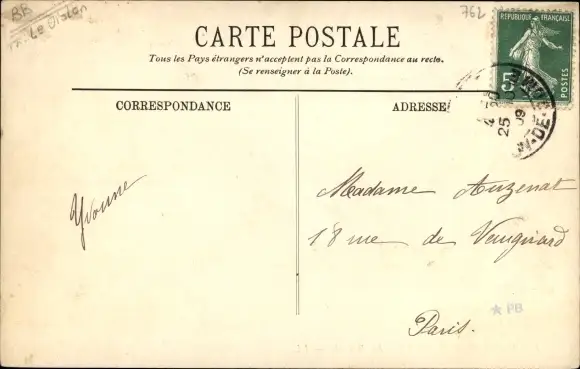 BB
762
CARTE POSTALE
Tous les Pays étrangers n'acceptent pas la Correspondance au recto.
(Se renseigner à la Poste).
RÉPUBLIQUE FRANÇAISE
POSTES
CORRESPONDANCE
ADRESSE
25
09
DE
Yvonne
Madame Auzenat
18 rue de Vaugirard
Paris.
PB